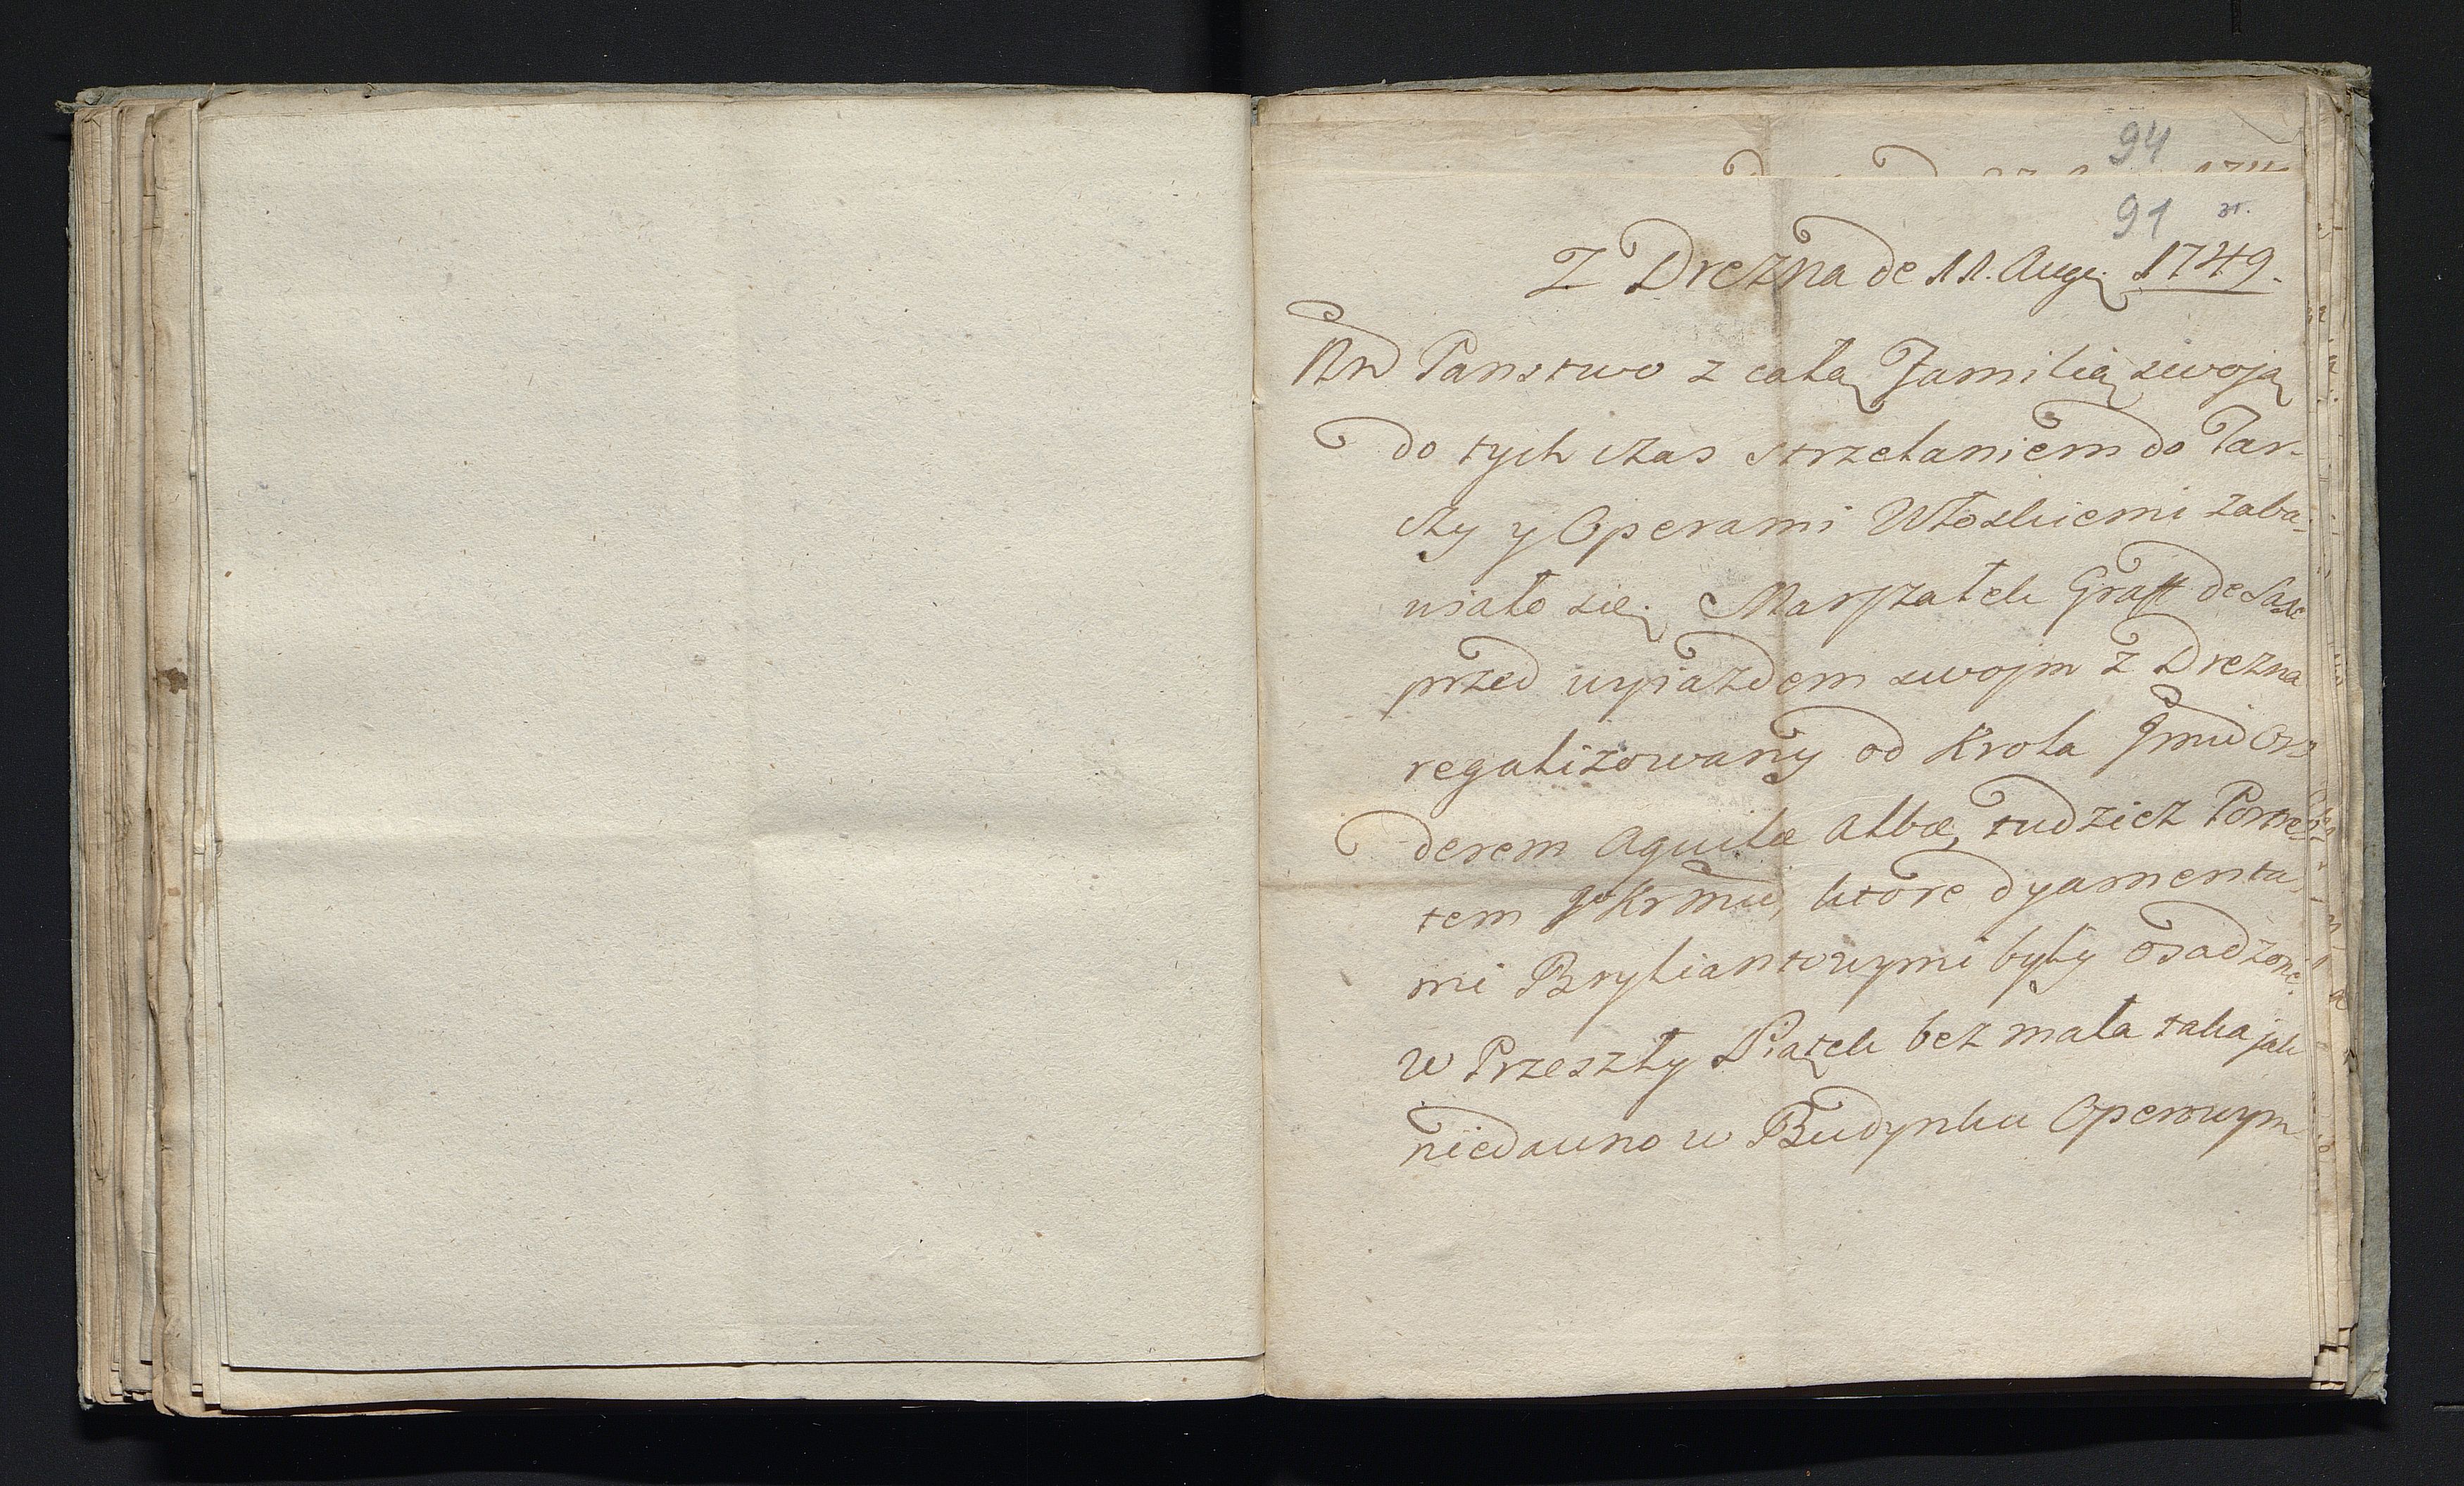 94
91 31.
Z Drezna de 11. Aug. 1749.
NN Panstwo z całą Familią swoją
do tych czas strzelaniem do Tar-
czy y Operami Włoskiemi zaba-
wiało się. Marszałek Graff de Saxe
przed wyiazdem swojm z Drezna
regalizowany od Krola Jmci Or-
derem Aquilæ Albæ, tudziesz Portre-
tem Jo Kr Mci, ktore dyamenta-
mi Bryliantowymi były osadzone.
W Przeszły Piątek bez mała taka jak
niedawno w Budynku Operowym